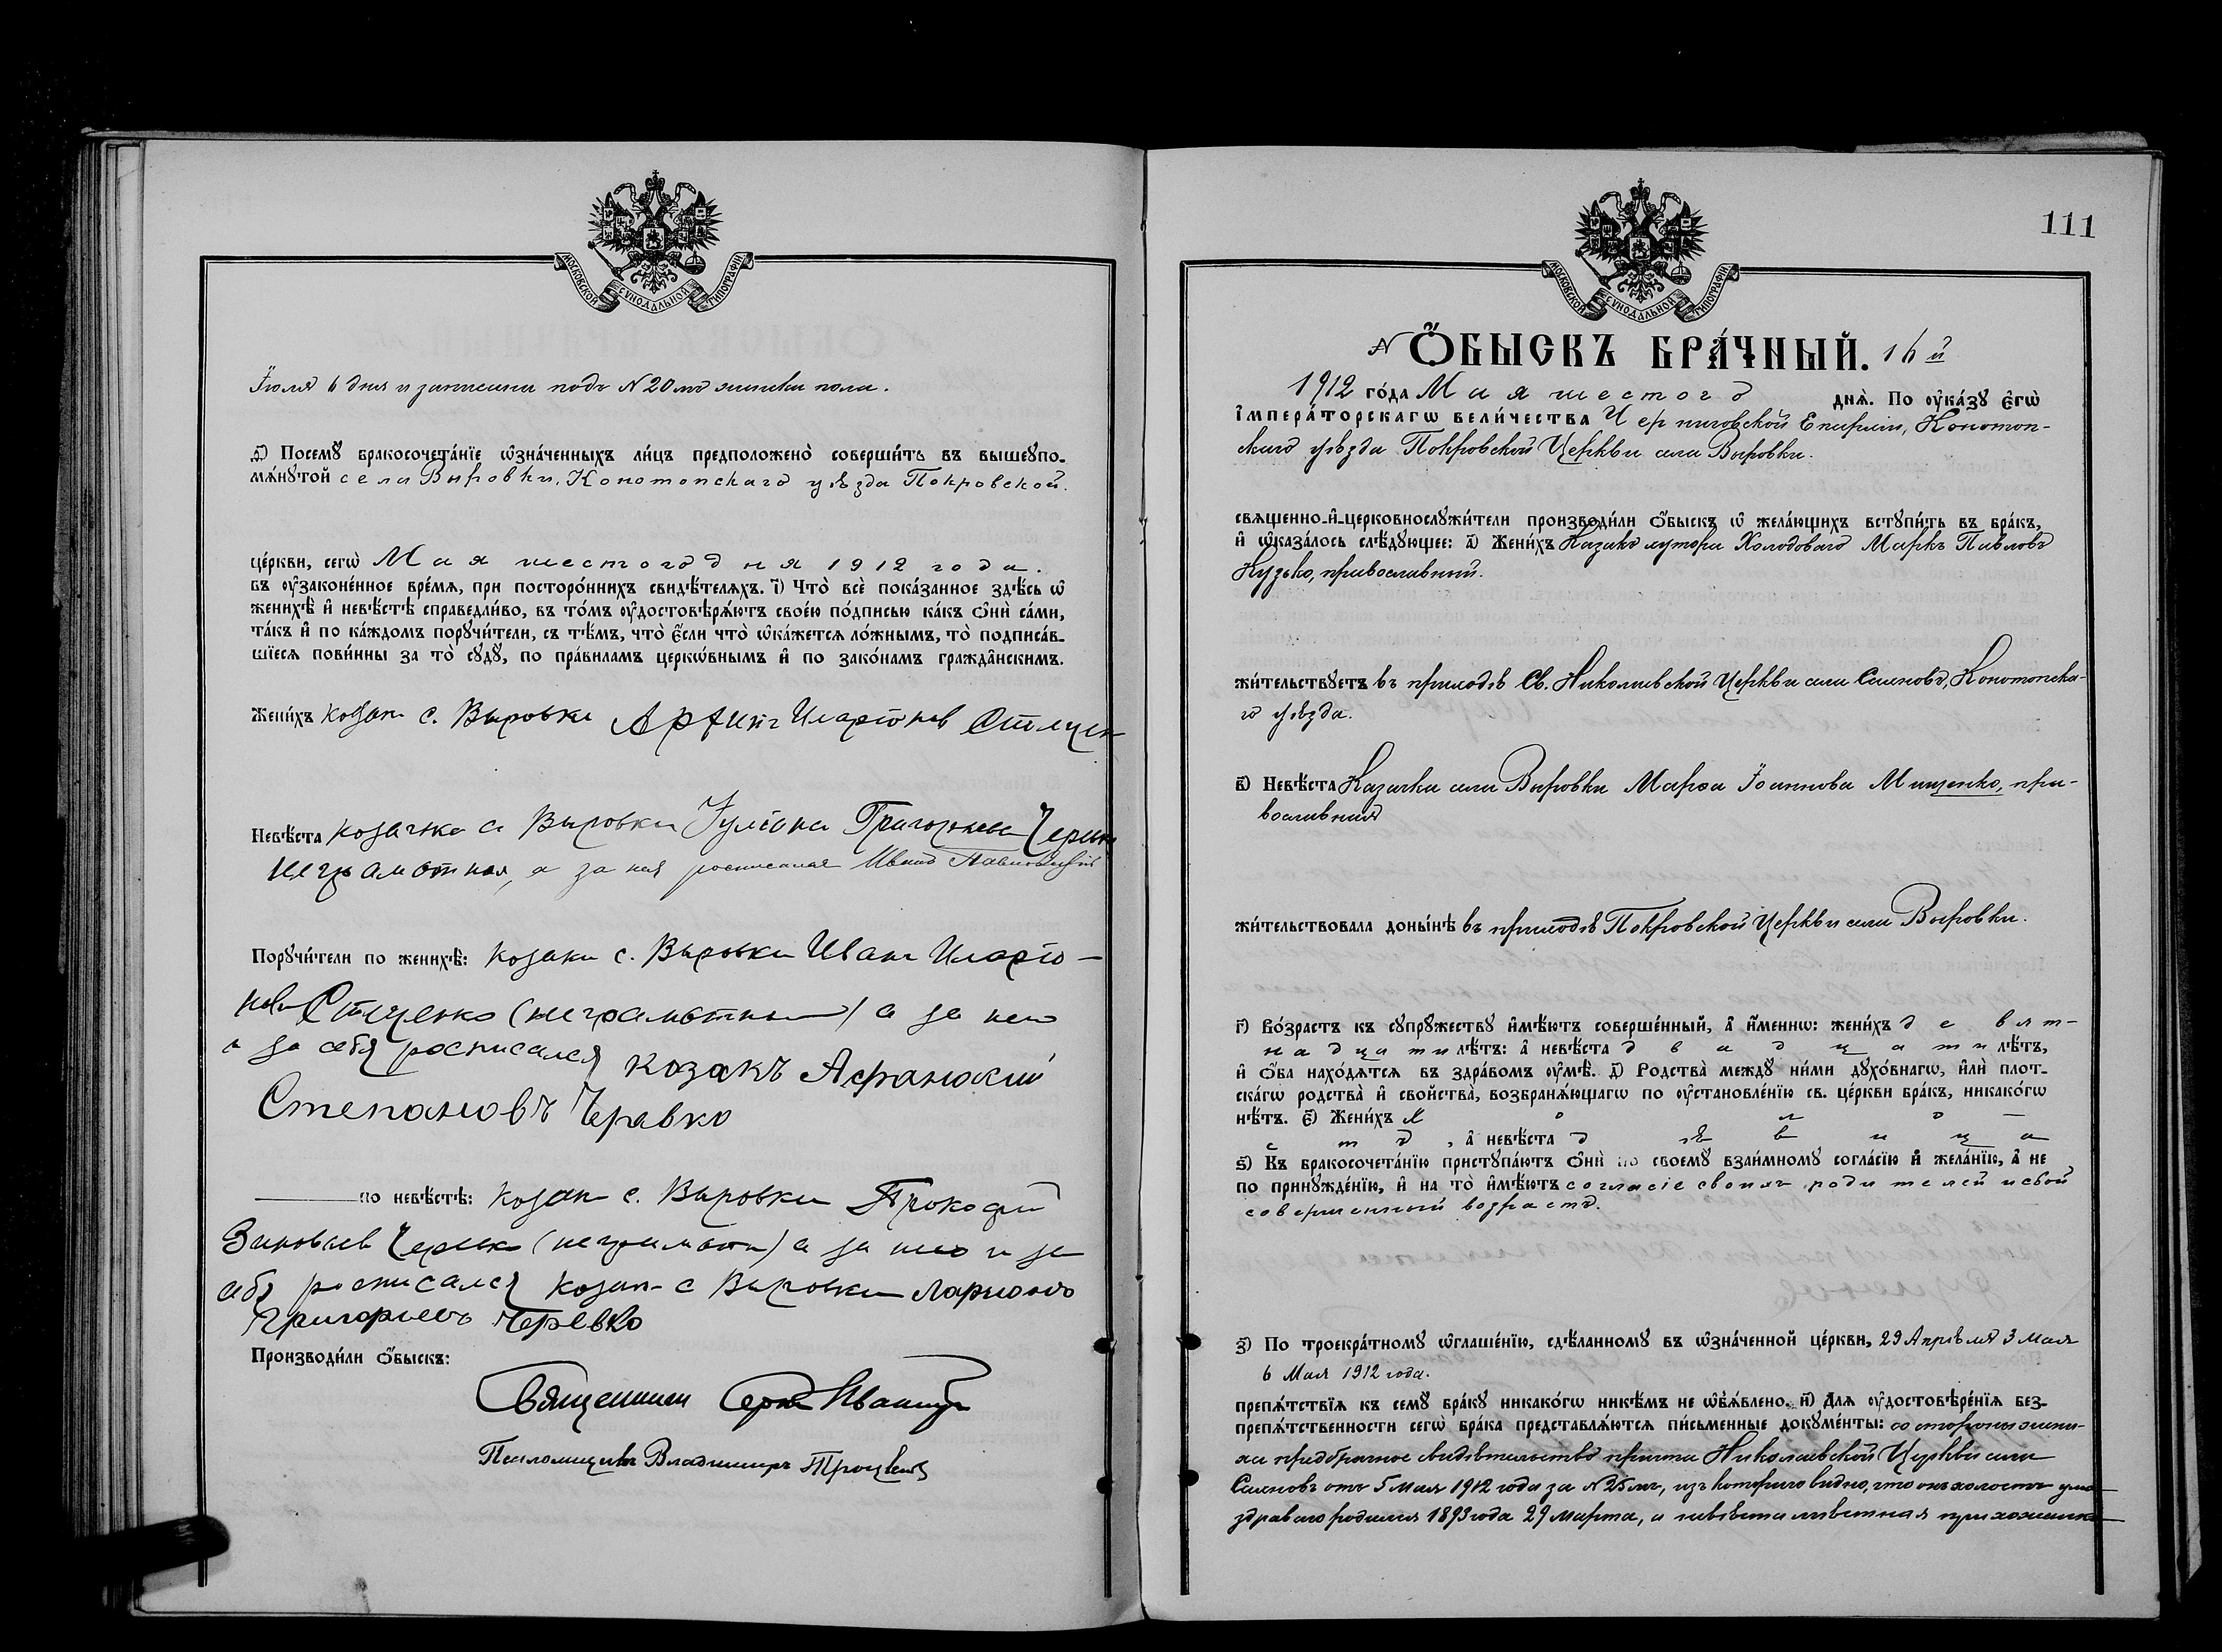 МОСКОВСКОЙ СѴНОДАЛЬНОЙ ТИПОГРАФІИ
Іюля 6 дня и записана подъ N 20мъ женска пола.
ѳ҃) Посемꙋ̀ бракосочета́нїе ѡ҆зна́ченныхъ ли́цъ предположено̀ соверши́ть въ вышеупо-
мѧ́нꙋтой села Выровки, Конотопскаго уѣзда Покровской
це́ркви, сегѡ̀ Мая шестого дня 1912 года.
въ ᲂу҆законе́нное вре́мѧ, при посторо́ннихъ свидѣ́телѧхъ. і҃) Что̀ всѐ пока́занное здѣ́сь ѡ҆
женихѣ̀ и҆ невѣ́стѣ справедли́во, въ то́мъ ᲂу҆достовѣрѧ́ютъ свое́ю по́дписью ка́къ ѻ҆нѝ са́ми,
та́къ и҆ по ка́ждомъ порꙋчи́тели, съ тѣ́мъ, что̀ є҆́сли что̀ ѡ҆ка́жетсѧ ло́жнымъ, то̀ подписа́в-
шїесѧ пови́нны за то̀ сꙋдꙋ̀, по пра́виламъ церкѡ́внымъ и҆ по зако́намъ гражда̑нскимъ.
Жени́хъ козак с. Выровки Иларіонов
Невѣ́ста козачка с. Выровки Іуліана Григорьева
неграмотная, а за нея росписался Иван
Порꙋчи́тели по женихѣ̀: козаки с. Выровки Иван Иларіо-
нов Стеценко (неграмотный) а за него
и за себя росписался козакъ Афанасий
Степановъ Черавко
по невѣ́стѣ: козак с. Выровки Прокофий
Зиновьев (неграмотн) а за него и за
себя росписался козак с Выровки Ларионъ
Григорьевъ Черевко
Производи́ли ѻ҆́быскъ:
Священник Иваницкий
Псаломщикъ Владимиръ Троцкий
111
МОСКОВСКОЙ СѴНОДАЛЬНОЙ ТИПОГРАФІИ
N Ѻ҆́БЫСКЪ БРА́ЧНЫЙ. 16й
1912 го́да Мая шестого днѧ̀. По ᲂу҆ка́зꙋ є҆гѡ̀
і҆мпера́торскагѡ вели́чества Черниговской Епархіи, Конотоп-
скаго уѣзда Покровской Церкви села Выровки.
свѧщенно-и҆-церковнослꙋжи́тели производи́ли ѻ҆́быскъ ѡ҆ жела́ющихъ встꙋпи́ть въ бра́къ,
и҆ ѡ҆каза́лось слѣ́дꙋющее: а҃) Жени́хъ Казакъ хутора Холодоваго Маркъ Павловъ
Кузько, православный.
жи́тельствꙋетъ въ приходѣ Св. Николаевской Церкви села Саеновъ, Конотопска-
го уѣзда.
в҃) Невѣ́ста Казачка села Выровки Марѳа Іоаннова Мищенко, пра-
вославная
жи́тельствовала доны́нѣ въ приходѣ Покровской Церкви села Выровки.
г҃) Во́зрастъ къ сꙋпрꙋ́жествꙋ и҆мѣ́ютъ соверше́нный, а҆ и҆́менно: жени́хъ девят-
надцати лѣ́тъ: а҆ невѣ́ста двадцати лѣ́тъ,
и҆ ѻ҆́ба нахо́дѧтсѧ въ здра́вомъ ᲂу҆мѣ̀. д҃) Родства̀ междꙋ̀ ни́ми дꙋхо́внагѡ, и҆лѝ плот-
ска́гѡ родства̀ и҆ свойства̀, возбранѧ́ющагѡ по ᲂу҆становле́нїю св. це́ркви бра́къ, никако́гѡ
нѣ́тъ. є҃) Жени́хъ холо-
стъ, а҆ невѣ́ста дѣвица
ѕ҃) Къ бракосочета́нїю пристꙋпа́ютъ ѻ҆нѝ по своемꙋ̀ взаи́мномꙋ согла́сїю и҆ жела́нїю, а҆ не
по принꙋжде́нїю, и҆ на то̀ и҆мѣ́ютъ согласіе своихъ родителей и свой
совершенный возрастъ.
з҃) По троекра́тномꙋ ѡ҆глаше́нїю, сдѣ́ланномꙋ въ ѡ҆зна́ченной це́ркви, 29 Апрѣля 3 Мая
6 Мая 1912 года.
препѧ́тствїѧ къ семꙋ̀ бра́кꙋ никако́гѡ никѣ́мъ не ѡ҆б̾ѧ́влено. и҃) Длѧ ᲂу҆достовѣре́нїѧ без-
препѧ́тственности сегѡ̀ бра́ка представлѧ́ютсѧ пи́сьменные докꙋме́нты: со стороны жени-
ха предбрачное свидѣтельство причта Николаевской Церкви села
Саеновъ отъ 5 Мая 1912 года за N 25мъ, изъ котораго видно, что онъ холостъ ума
здраваго родился 1893 года 29 Марта, а невѣста мѣстная прихожанка